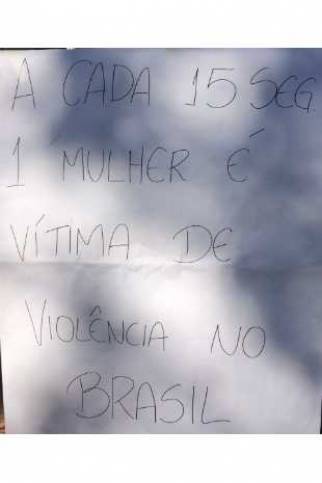 A CADA 15 SEG
1 MULHER É
VÍTIMA DE
VIOLÊNCIA NO
BRASIL